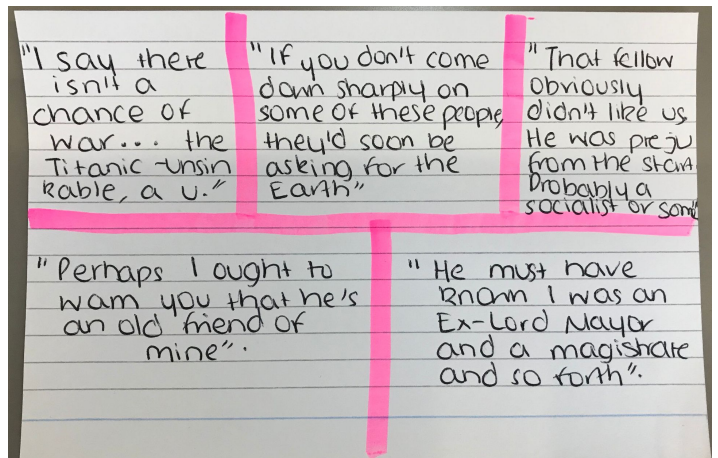 "I say there
isn't a
chance of
war... the
Titanic -unsin
kable, a u."
"If you don't come
down sharply on
some of these people,
they'd soon be
asking for the
Earth"
"That fellow
obviously
didn't like us,
He was preju
from the start.
Probably a
socialist or som
"Perhaps I ought to
warn you that he's
an old friend of
mine".
"He must have
known I was an
Ex-Lord Mayor
and a magistrate
and so forth".